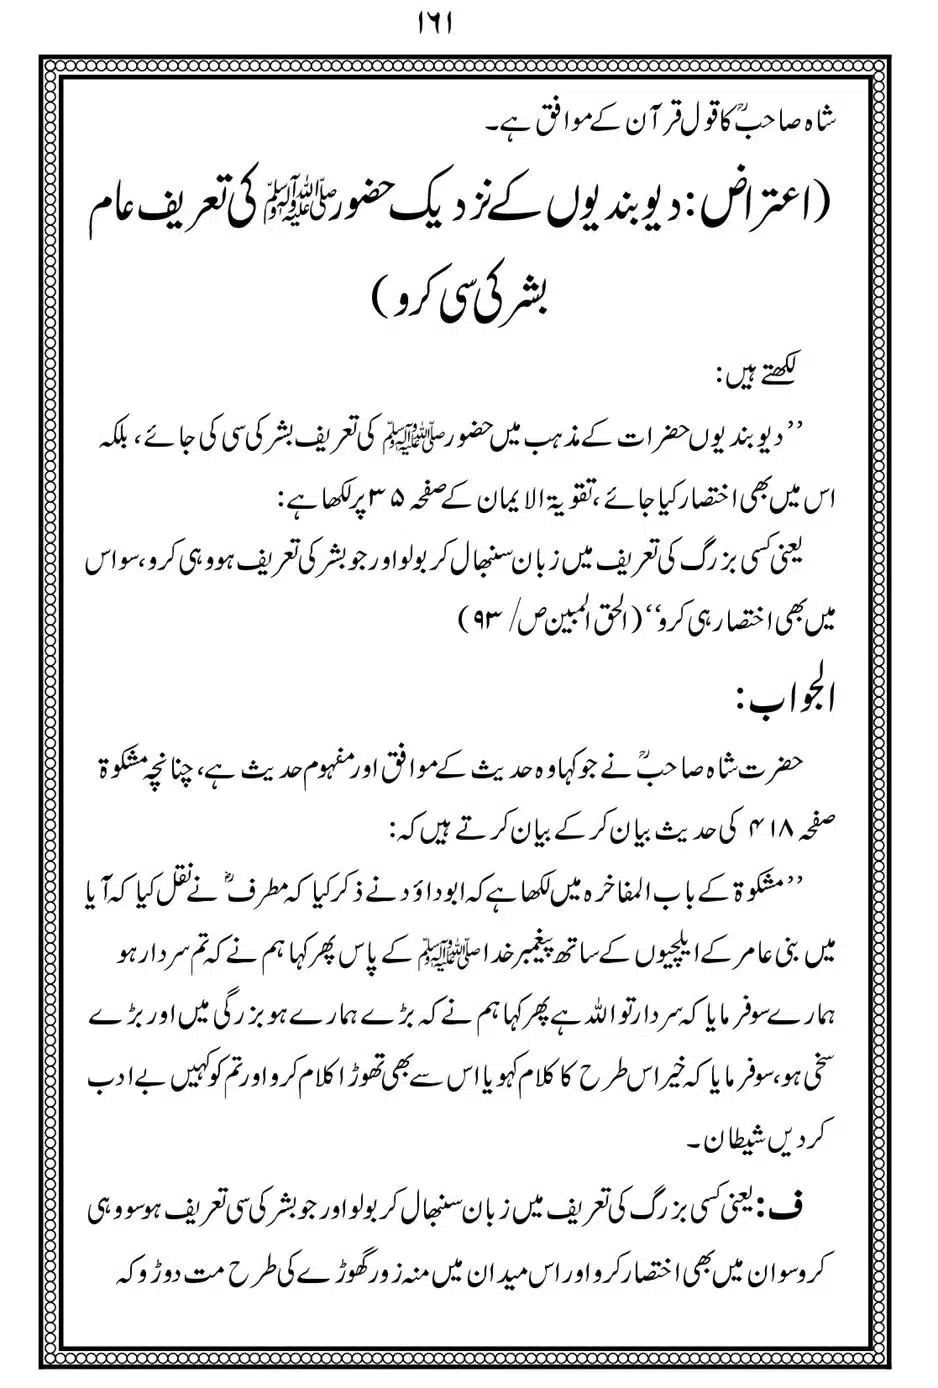 ۱۶۱
شاہ صاحبؒ کا قول قرآن کے موافق ہے۔
(اعتراض: دیوبندیوں کے نزدیک حضور ﷺ کی تعریف عام
بشر کی سی کرو)
لکھتے ہیں:
’’دیوبندیوں حضرات کے مذہب میں حضور ﷺ کی تعریف بشر کی سی کی جائے، بلکہ
اس میں بھی اختصار کیا جائے، تقویۃ الایمان کے صفحہ ۳۵ پر لکھا ہے:
یعنی کسی بزرگ کی تعریف میں زبان سنبھال کر بولو اور جو بشر کی تعریف ہو وہی کرو، سو اس
میں بھی اختصار ہی کرو‘‘ (الحق المبین ص/ ۹۳)
الجواب:
حضرت شاہ صاحبؒ نے جو کہا وہ حدیث کے موافق اور مفہوم حدیث ہے، چنانچہ مشکوۃ
صفحہ ۴۱۸ کی حدیث بیان کر کے بیان کرتے ہیں کہ:
’’مشکوۃ کے باب المفاخرہ میں لکھا ہے کہ ابوداؤد نے ذکر کیا کہ مطرفؓ نے نقل کیا کہ آیا
میں بنی عامر کے ایلچیوں کے ساتھ پیغمبر خدا ﷺ کے پاس پھر کہا ہم نے کہ تم سردار ہو
ہمارے سو فرمایا کہ سردار تو اللہ ہے پھر کہا ہم نے کہ بڑے ہمارے ہو بزرگی میں اور بڑے
سخی ہو، سو فرمایا کہ خیر اس طرح کا کلام کہو یا اس سے بھی تھوڑا کلام کرو اور تم کو کہیں بے ادب
کر دیں شیطان۔
ف: یعنی کسی بزرگ کی تعریف میں زبان سنبھال کر بولو اور جو بشر کی سی تعریف ہو سو وہی
کرو سو ان میں بھی اختصار کرو اور اس میدان میں منہ زور گھوڑے کی طرح مت دوڑو کہ